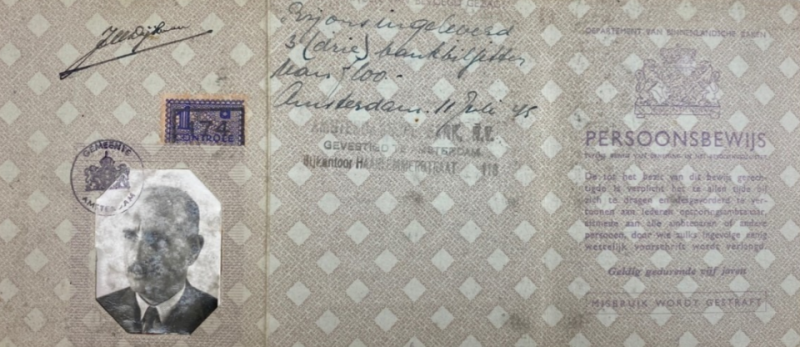 1
74
CONTROLE
GEMEENTE
AMSTERDAM
Bij ons ingeleverd
3 (drie) bankbiljetten
van 100.-
Amsterdam. 11 Juli 45
BANK. N.V.
GEVESTIGD TE AMSTERDAM
Bijkantoor HAARLEMMERSTRAAT 118
DEPARTEMENT VAN BINNENLANDSCHE ZAKEN
PERSOONSBEWIJS
De tot het bezit van dit bewijs gerech-
tigde is verplicht het te allen tijde bij
zich te dragen en desgevorderd te ver-
toonen aan iederen opsporingsambtenaar,
alsmede aan alle ambtenaren of andere
personen, door wie zulks ingevolge eenig
wettelijk voorschrift wordt verlangd.
Geldig gedurende vijf jaren
MISBRUIK WORDT GESTRAFT